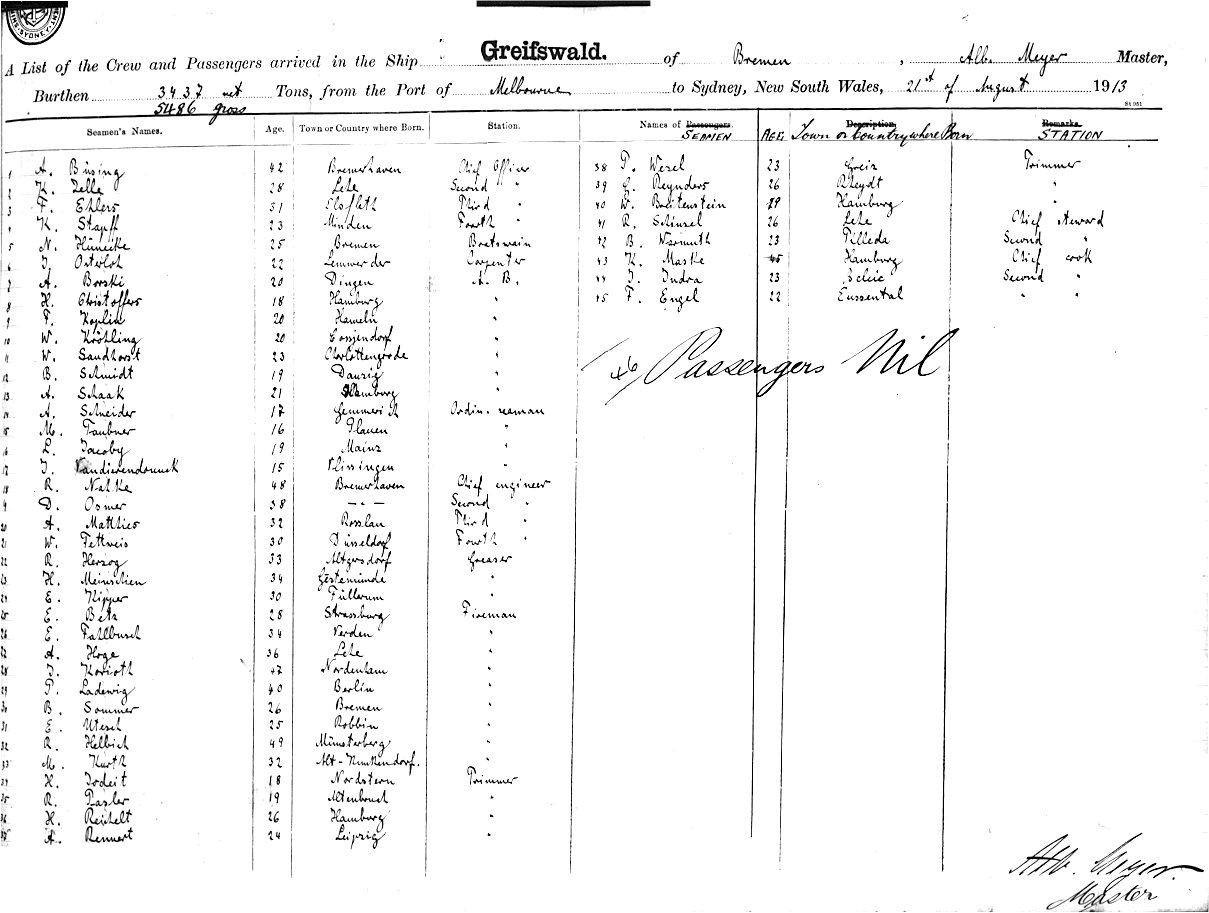 SYDNEY
A List of the Crew and Passengers arrived in the Ship Greifswald. of Bremen, Alb. Meyer Master,
Burthen 3437 net Tons, from the Port of Melbourne to Sydney, New South Wales, 21st of August 1913
5486 gross
St 951
Seamen's Names. Age. Town or Country where Born. Station.
1 A. Büsing 42 Bremerhaven Chief Officer
2 K. Zelle 28 Lehe Second "
3 F. Ehlers 31 Elsfleth Third "
4 K. Stapff 23 Minden Fourth "
5 N. Hünecke 25 Bremen Boatswain
6 J. Osterloh 22 Lemwerder Carpenter
7 A. Borski 20 Dingen A. B.
8 H. Christoffers 18 Hamburg "
9 F. Koplin 20 Hameln "
10 W. Kröhling 20 Gossendorf "
11 W. Sandhorst 23 Charlottengrode "
12 B. Schmidt 19 Danzig "
13 A. Schaak 21 Hamburg "
14 A. Schneider 17 Gemmerich Ordin. seaman
15 M. Taubner 16 Plauen "
16 L. Jacoby 19 Mainz "
17 J. Vandierendonck 15 Vlissingen "
18 R. Nahke 48 Bremerhaven Chief engineer
19 D. Osmer 38 — " — Second "
20 A. Matthies 32 Rosslau Third "
21 W. Fettweis 30 Düsseldorf Fourth "
22 R. Herzog 33 Altgersdorf Greaser
23 H. Meinschien 34 Gestemünde "
24 E. Kipper 30 Füllerum "
25 E. Betz 28 Strassburg Fireman
26 E. Fahlbusch 34 Verden "
27 A. Hoge 36 Lehe "
28 J. Korioth 47 Nordenham "
29 P. Ladewig 40 Berlin "
30 B. Sommer 26 Bremen "
31 E. Utesch 25 Robbin "
32 R. Helbich 49 Münsterberg "
33 M. Kurth 32 Alt-Kunkendorf. "
34 H. Jodeit 18 Nordstern Trimmer
35 R. Pasler 19 Altenbruch "
36 H. Reichelt 26 Hamburg "
37 A. Rennert 24 Leipzig "
Names of Passengers. Description. Remarks.
SEAMEN AGE. Town or Country where Born STATION
38 P. Wesel 23 Greiz Trimmer
39 G. Reynders 26 Rheydt "
40 W. Breitenstein 19 Hamburg "
41 R. Schinzel 26 Lehe Chief Steward
42 B. Warmuth 23 Tilleda Second "
43 K. Maske 45 Hamburg Chief cook
44 J. Indra 23 Second "
45 F. Engel 22 Eussental " "
46 Passengers Nil
Alb. Meyer.
Master